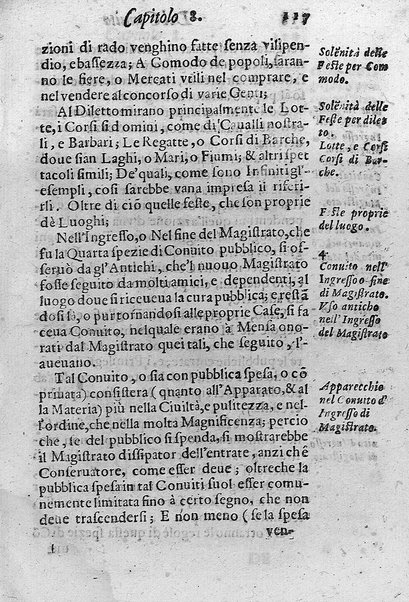 Capitolo 8. 117
zioni di rado venghino fatte senza vilipen-
dio, e bassezza; A Comodo de popoli, saran-
no le fiere, o Mercati vtili nel comprare, e
nel vendere al concorso di varie Genti;
Al Diletto mirano principalmente le Lot-
te, i Corsi sì d omini, come di Caualli nostra-
li, e Barbari; Le Regatte, o Corsi di Barche,
doue sian Laghi, o Mari, o Fiumi; & altri spet
tacoli simili; De'quali, come sono Infiniti gl'
esempli, così sarebbe vana impresa il riferir-
li. Oltre di ciò quelle feste, che son proprie
dè Luoghi;
Nell'Ingresso, o Nel fine del Magistrato, che
fu la Quarta spezie di Conuito publico, si os-
seruò da gl'Antichi, che'l nuouo Magistrato
fosse seguito da molti amici, e dependenti, al
luogo doue si riceueua la cura publica; e restã
dosi là, o pur tornandosi alle proprie Case, si fa
ceua Conuito, nel quale erano à Mensa ono-
rati dal Magistrato quei tali, che seguito, l'-
aueuano.
Tal Conuito, o sia con publica spesa, o cõ
priuata) consisterà (quanto all'Apparato, & al
la Materia) più nella Ciuiltà, e pulitezza, e nel-
l'ordine, che nella molta Magnificenza; percio
che, se del publico si spenda, si mostrarebbe
il Magistrato dissipator dell'entrate, anzi chè
Conseruatore, come esser deue; oltreche la
publica spesa in tal Conuiti suol esser comu-
nemente limitata fino à certo segno, che non
deue trascendersi; E non meno (se la spesa
ven-
Solẽnità delle
Feste per Com
modo.
Solẽnità delle
Feste per dilet
to.
Lotte, e Corsi
Corsi di Bar-
che.
Feste proprie
del luogo.
4
Conuito nell'
Ingresso o fine
di Magistrato.
Vso antico
nell'Ingresso
del Magistrato
Apparecchio
nel Conuito d'
Ingresso di
Magistrato.